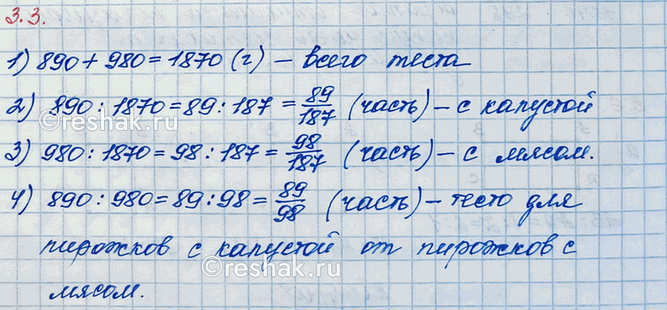 3.3.
1) 890 + 980 = 1870 (г) – всего теста
2) 890 : 1870 = 89 : 187 = 89/187 (часть) – с капустой
3) 980 : 1870 = 98 : 187 = 98/187 (часть) – с мясом.
4) 890 : 980 = 89 : 98 = 89/98 (часть) – тесто для
пирожков с капустой от пирожков с
мясом.
©reshak.ru
©reshak.ru
©reshak.ru